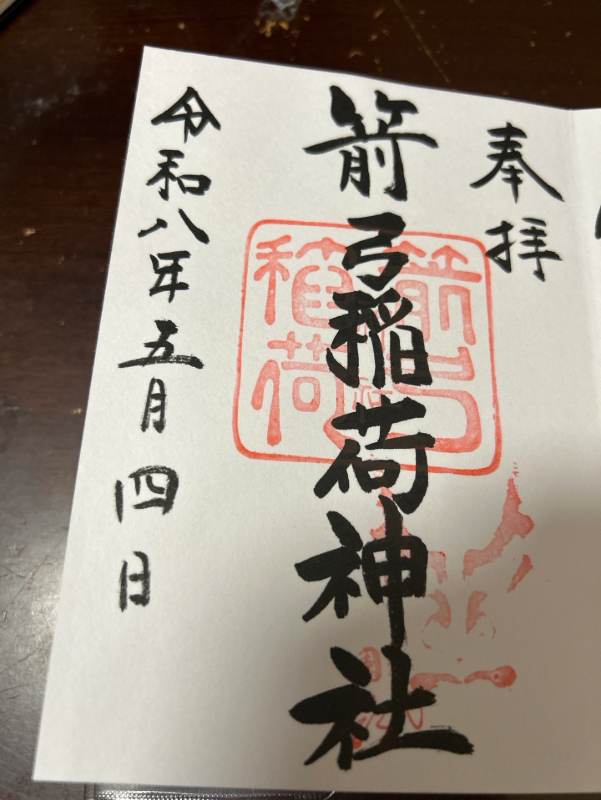 奉拝
箭弓稲荷神社
箭弓
稲荷
令和八年五月四日